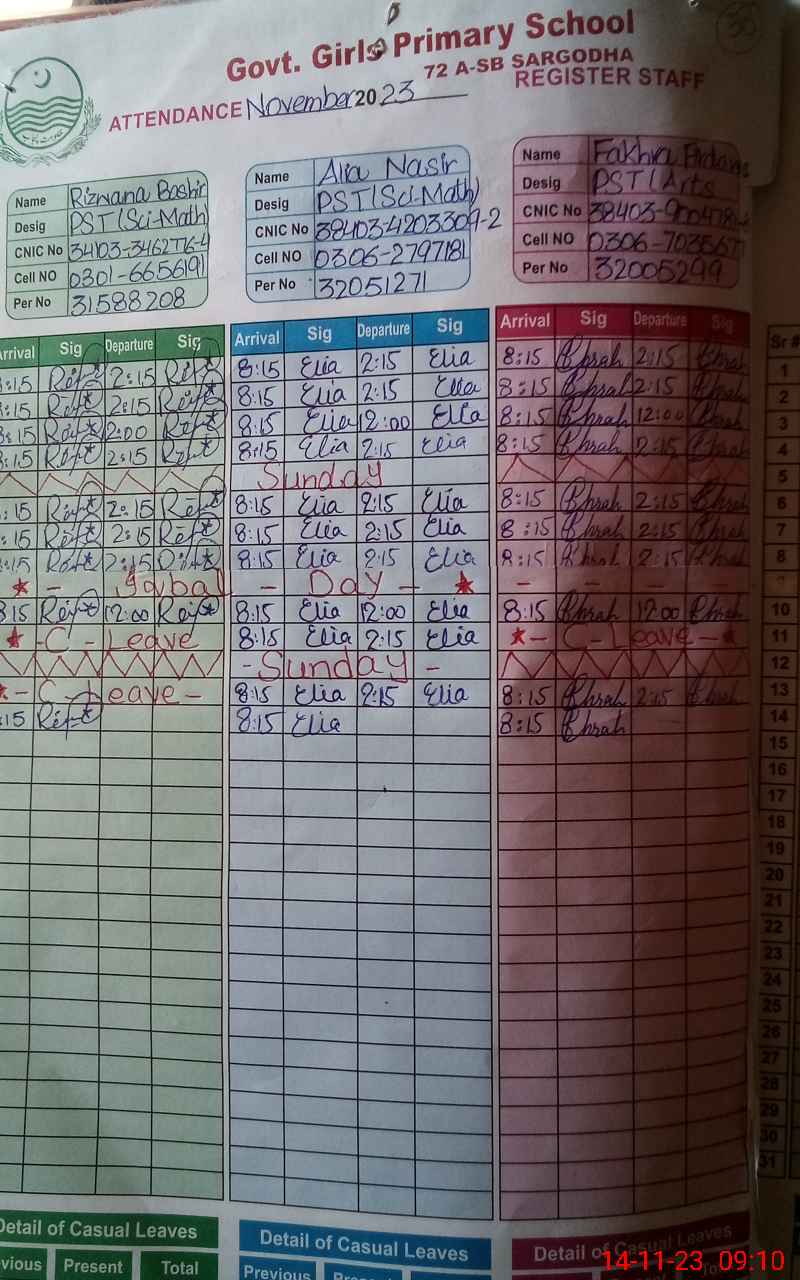 30
Govt. Girls Primary School
72 A-SB SARGODHA
ATTENDANCE November 2023 REGISTER STAFF
Name Rizwana Bashir
Desig PST(Sci-Math)
CNIC No 34103-3462776-4
Cell NO 0301-6656191
Per No 31588208
Name Alia Nasir
Desig PST(Sci-Math)
CNIC No 38403-4203309-2
Cell NO 0306-2797181
Per No 32051271
Name Fakhra
Desig PST(Arts
CNIC No
Cell NO
Per No 32005299
Arrival Sig Departure Sig Arrival Sig Departure Sig Arrival Sig Departure Sig Sr #
:15 2:15 8:15 Elia 2:15 Elia 8:15 2:15 1
:15 2:15 8:15 Elia 2:15 Elia 8:15 2:15 2
8:15 2:00 8:15 Elia 12:00 Elia 8:15 12:00 3
8:15 2:15 8:15 Elia 2:15 Elia 8:15 2:15 4
Sunday 5
:15 2:15 8:15 Elia 2:15 Elia 8:15 2:15 6
:15 2:15 8:15 Elia 2:15 Elia 8:15 2:15 7
:15 2:15 8:15 Elia 2:15 Elia 8:15 2:15 8
- Iqbal - Day - - - -
8:15 12:00 8:15 Elia 12:00 Elia 8:15 12:00 10
- C - Leave 8:15 Elia 2:15 Elia - C - Leave - 11
- Sunday - 12
- C - Leave - 8:15 Elia 2:15 Elia 8:15 2:15 13
:15 8:15 Elia 8:15 14
15
16
17
18
19
20
21
22
23
24
25
26
27
28
29
30
31
Detail of Casual Leaves Detail of Casual Leaves Detail of Casual Leaves
vious Present Total Previous
14-11-23 09:10